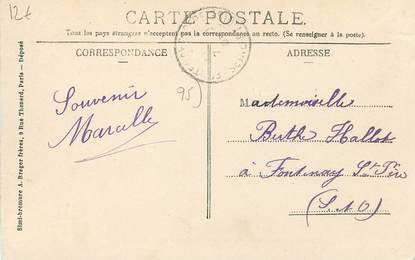 12€
CARTE POSTALE.
Tous les pays étrangers n'acceptent pas la correspondance au recto. (Se renseigner à la poste).
CORRESPONDANCE
ADRESSE
Simi-bromure A. Breger frères, 9 Rue Thénard, Paris - Déposé
95)
Souvenir
Marcelle
Mademoiselle
Berthe Hallot
à Fontenay St Père
(S & O)